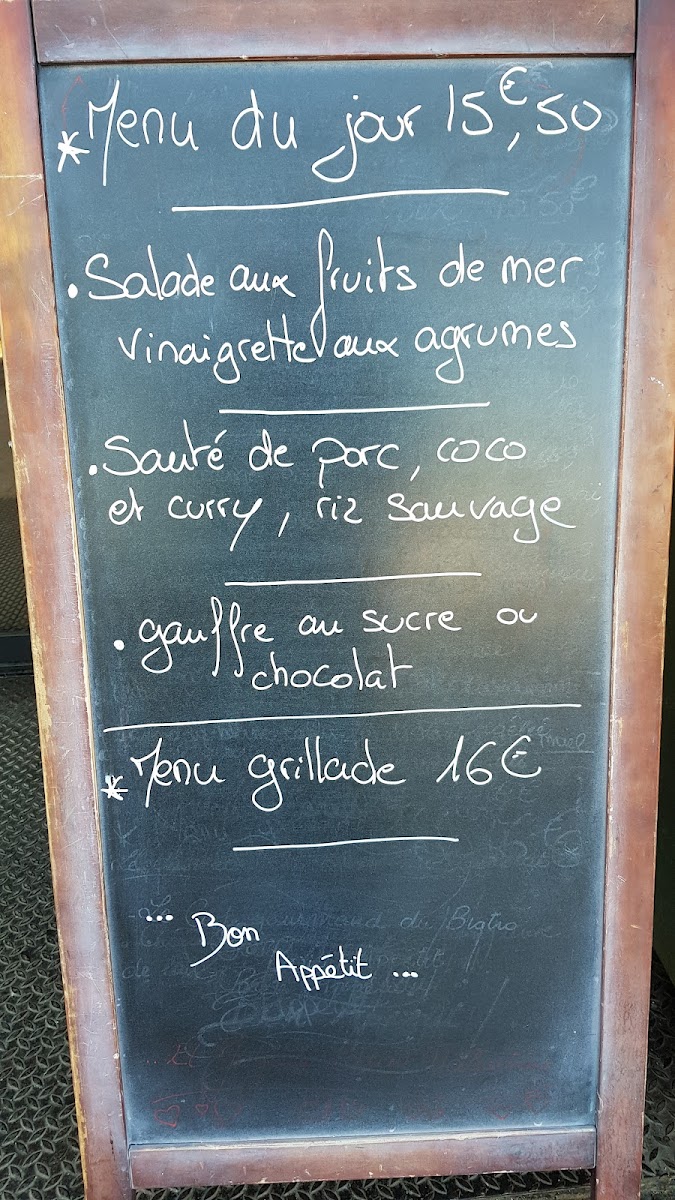 *Menu du jour 15€,50
.Salade aux fruits de mer
vinaigrette aux agrumes
.Sauté de porc, coco
et curry, riz sauvage
.gauffre au sucre ou
chocolat
*Menu grillade 16€
... Bon
Appétit ...